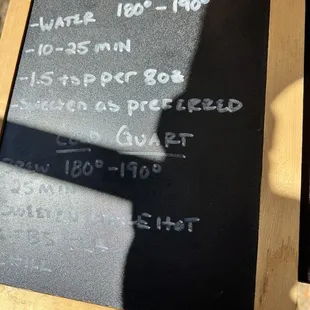 - WATER 180° - 190°
- 10-25 MIN
- 1.5 tsp per 8oz
- Sweeten as preferred
COLD QUART
BREW 180° - 190°
25 MIN
SWEETEN WHILE HOT